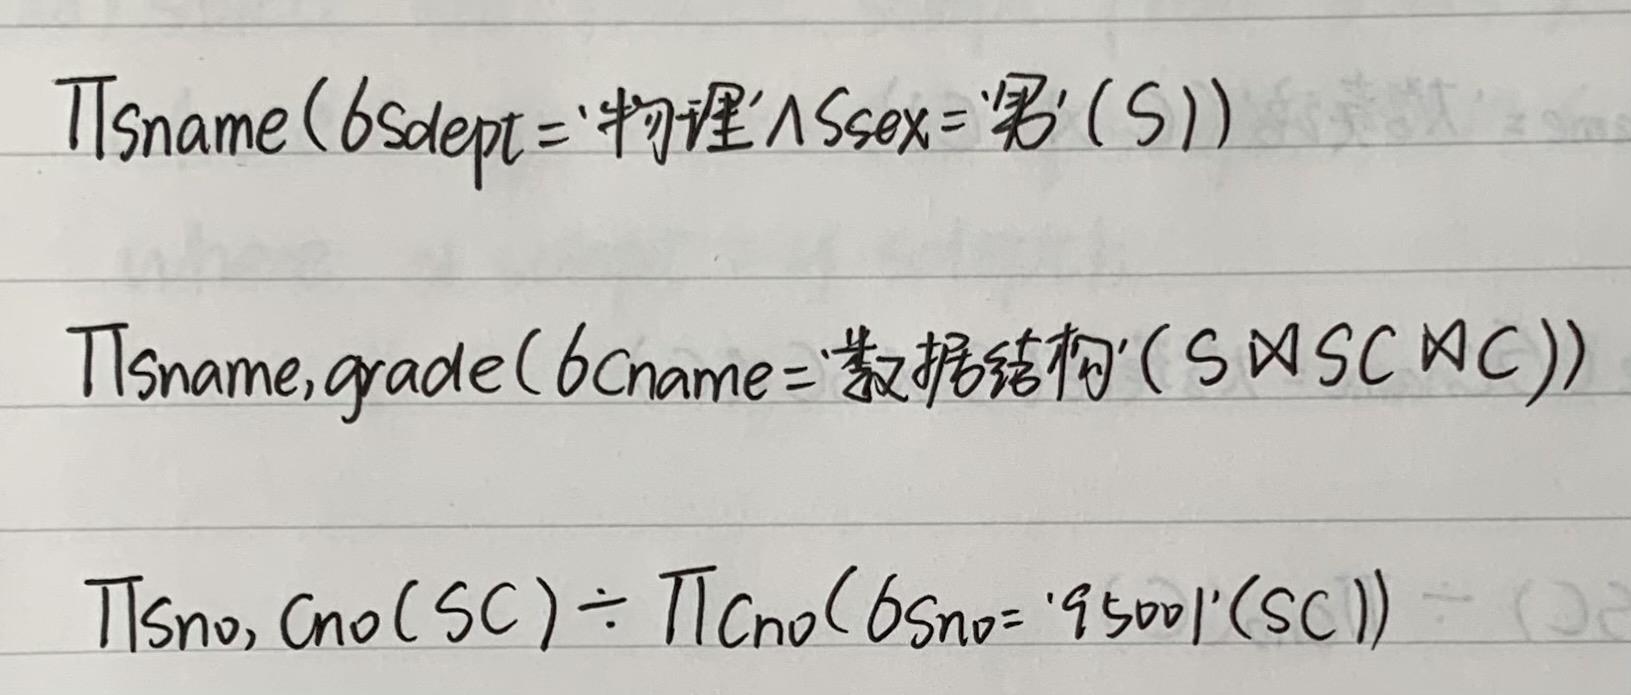 πSname(σSdept='物理'∧Ssex='男'(S))
πSname,grade(σCname='数据结构'(S⋈SC⋈C))
πSno,Cno(SC)÷πCno(σSno='95001'(SC))